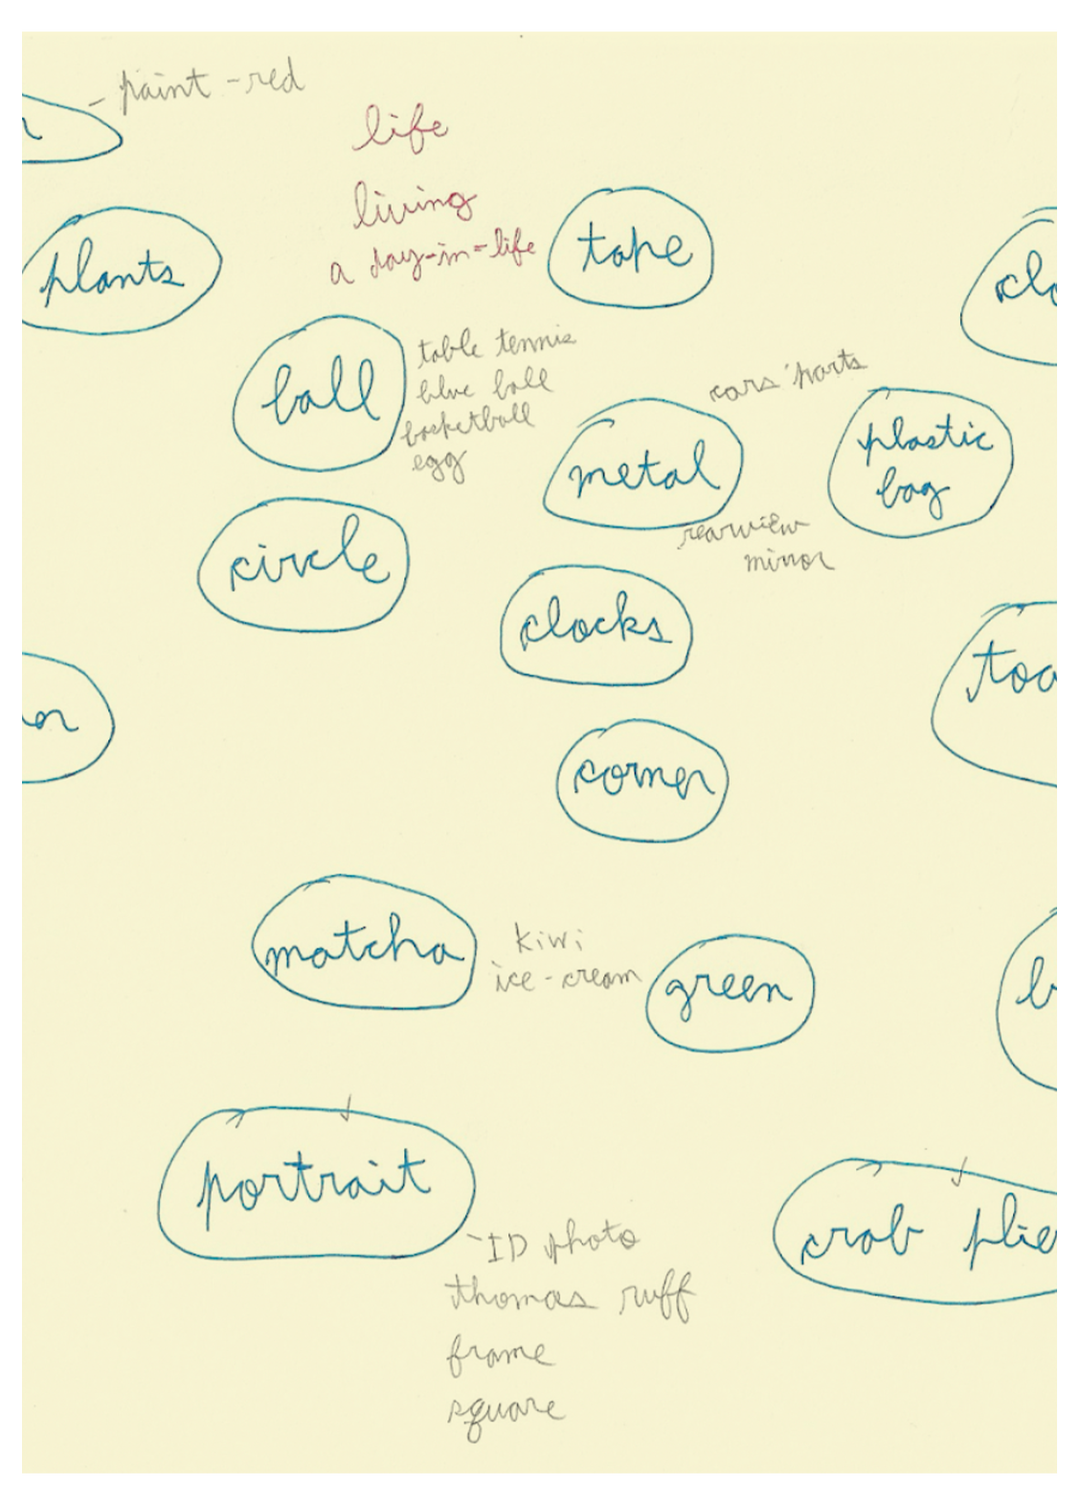 - paint - red
life
living
a day-in-life
tape
plants
ball
table tennis
blue ball
basketball
egg
cars' parts
metal
plastic
bag
rearview
mirror
circle
clocks
corner
matcha
kiwi
ice-cream
green
portrait
- ID photo
thomas ruff
frame
square
crab plie